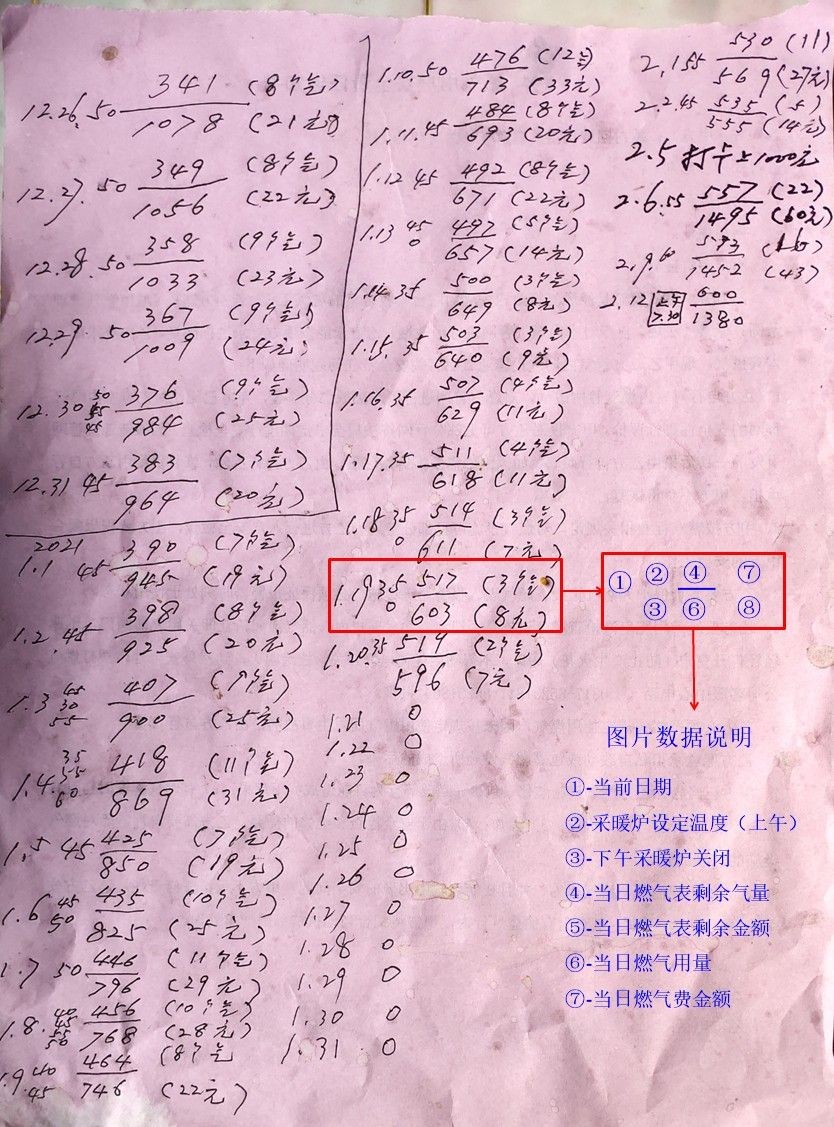 12.26.50 341/1078 (8个字) (21元)
12.27.50 349/1056 (8个字) (22元)
12.28.50 358/1033 (9个字) (23元)
12.29.50 367/1009 (9个字) (24元)
12.30 50 55 45 376/984 (9个字) (25元)
12.31 45 383/964 (7个字) (20元)
2021
1.1 45 390/945 (7个字) (19元)
1.2.45 398/925 (8个字) (20元)
1.3 45 30 55 407/900 (9个字) (25元)
1.4.35 55 60 418/869 (11个字) (31元)
1.5 45 425/850 (7个字) (19元)
1.6 45 50 435/825 (10个字) (25元)
1.7 50 446/796 (11个字) (29元)
1.8. 40 45 55 50 456/768 (10个字) (28元)
1.9 40 45 464/746 (8个字 (22元)
1.10.50 476/713 (12字) (33元)
1.11.45 484/693 (8个字) (20元)
1.12 45 492/671 (8个字) (22元)
1.13 45 0 497/657 (5个字) (14元)
1.14.35 500/649 (3个字) (8元)
1.15.35 503/640 (3个字) (9元)
1.16.35 507/629 (4个字) (11元)
1.17.35 511/618 (4个字) (11元)
1.18 35 0 514/611 (3个字) (7元)
1.19 35 0 517/603 (3个字) (8元)
1.20.35 519/596 (2个字) (7元)
1.21 0
1.22 0
1.23 0
1.24 0
1.25 0
1.26 0
1.27 0
1.28 0
1.29 0
1.30 0
1.31 0
2.1 55 530/569 (11) (27元)
2.2.45 535/555 (5) (14元)
2.5 打卡上1000元
2.6.55 557/1495 (22) (60元)
2.9.60 573/1452 (16) (43)
2.12 上午 7.30 600/1380
① ② ④ ⑦
③ ⑥ ⑧
图片数据说明
①-当前日期
②-采暖炉设定温度（上午）
③-下午采暖炉关闭
④-当日燃气表剩余气量
⑤-当日燃气表剩余金额
⑥-当日燃气用量
⑦-当日燃气费金额